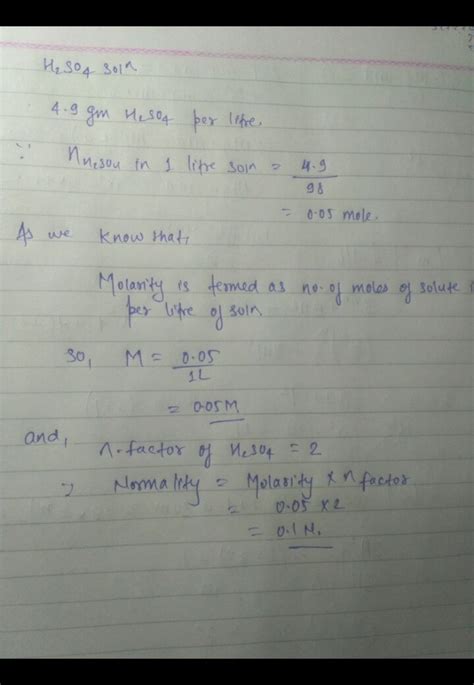 H₂SO₄ soln
4.9 gm H₂SO₄ per litre.
∵ nH₂SO₄ in 1 litre soln = 4.9
98
= 0.05 mole.
As we know that,
Molarity is termed as no. of moles of solute
per litre of soln
so, M = 0.05
1L
= 0.05M
and,
n-factor of H₂SO₄ = 2
Normality = Molarity × n factor
= 0.05 × 2
= 0.1 N.